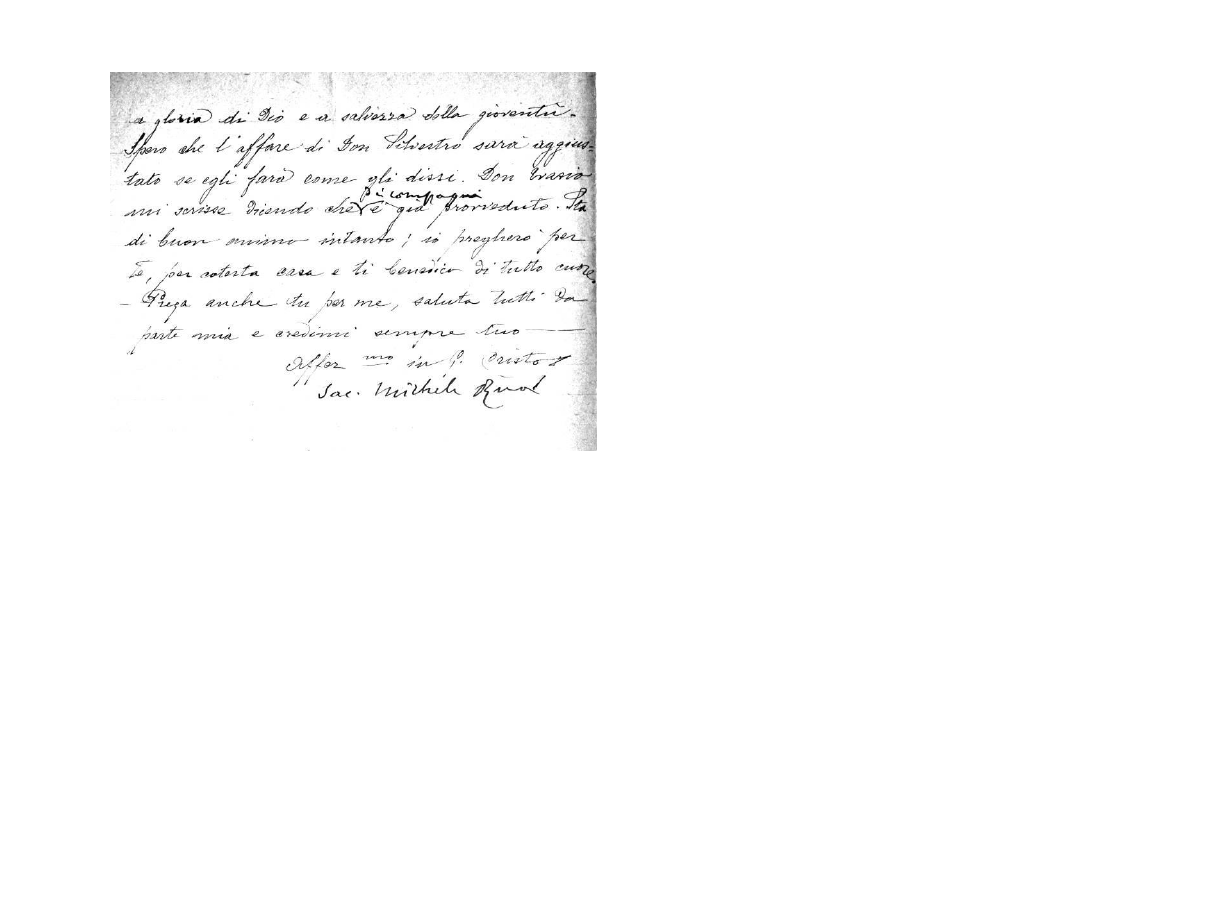 a gloria di Dio e a salvezza della gioventù.
Spero che l'affare di Don Silvestro sarà aggius=
tato se egli farà come gli dissi. Don Erasio
di compagni
mi scrisse dicendo che è già provveduto. Sta
di buon animo intanto; io pregherò per
te, per cotesta casa e ti benedico di tutto cuore.
- Prega anche tu per me, saluta tutti da
parte mia e credimi sempre tuo
Affez mo in G. Cristo
Sac. Michele Rua